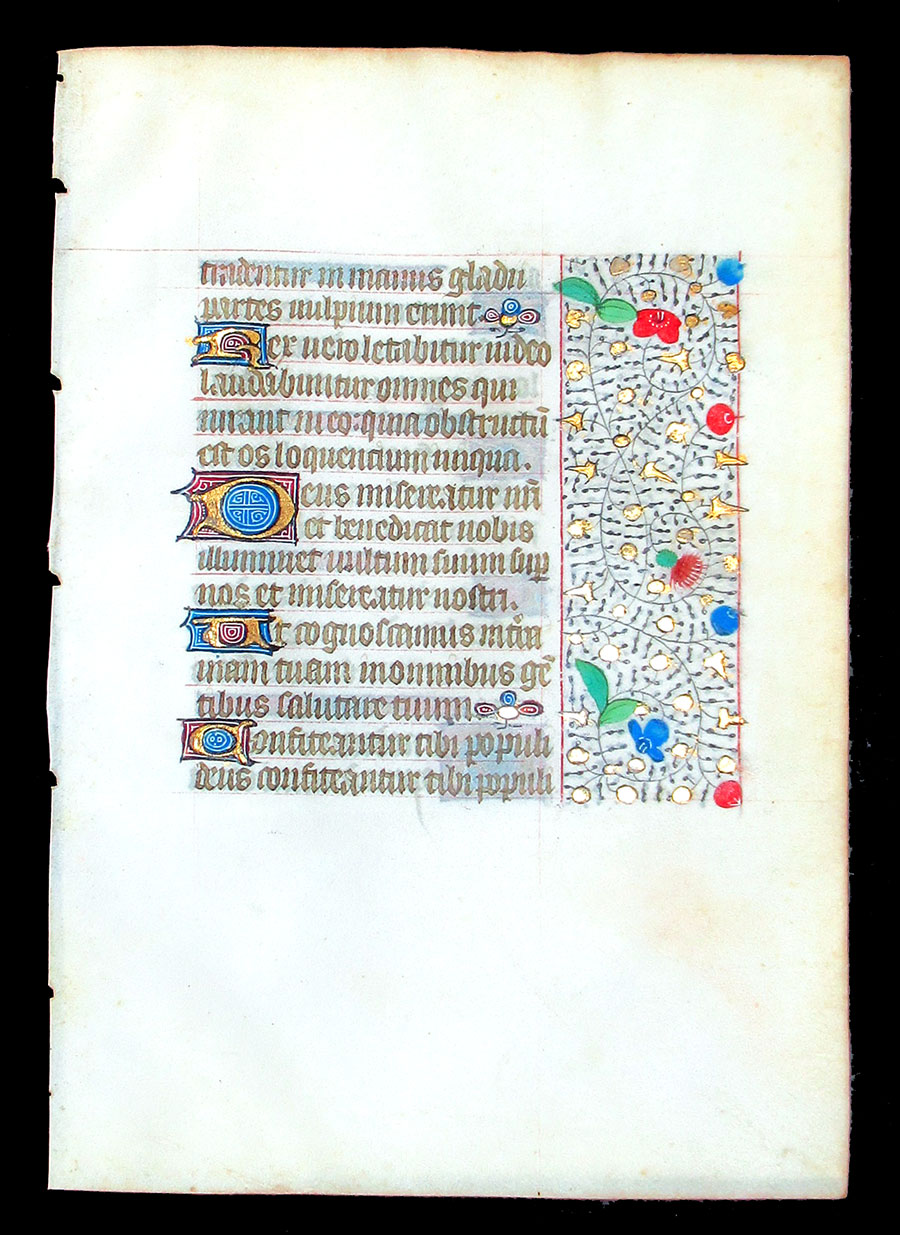 tradentur in manus gladii
partes uulpium erunt
Rex uero letabitur in deo
laudabuntur omnes qui
iurant in eo: quia obstructū
est os loquentium iniqua.
Deus misereatur nr̄i
et benedicat nobis
illuminet uultum suum sup
nos et misereatur nostri.
Ut cognoscamus in terra
uiam tuam in omnibus gē
tibus salutare tuum.
Confiteantur tibi populi
deus confiteantur tibi populi